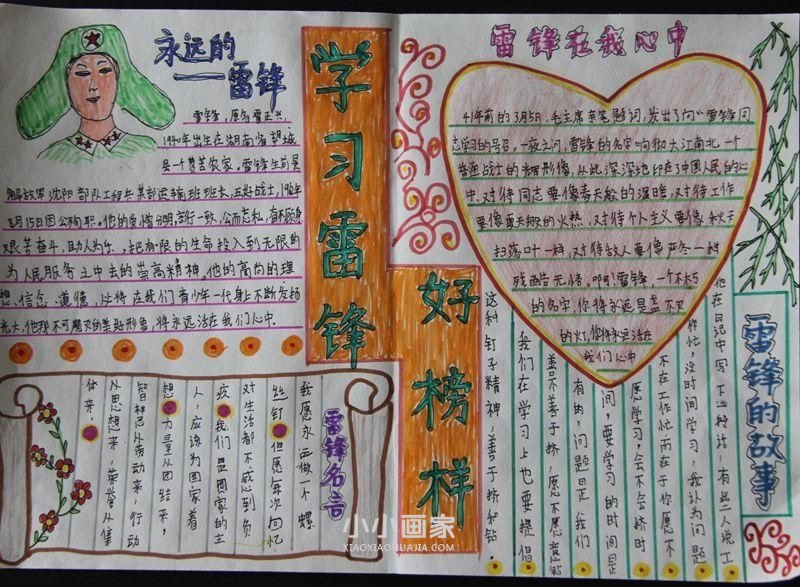 永远的
—雷锋
雷锋，原名雷正兴
1940年出生在湖南省望城
县一个贫苦农家，雷锋生前是
解放军沈阳部队工程兵某部运输班班长，五好战士，1962年
8月15日因公殉职，他的爱憎分明，言行一致，公而忘私，奋不顾身
艰苦奋斗，助人为乐，把有限的生命投入到无限的
为人民服务之中去的崇高精神，他的高尚的理
想、信念、道德，必将在我们青少年一代身上不断发扬
光大，他那不可磨灭的美好形象，将永远活在我们心中。
学习雷锋
好榜样
雷锋在我心中
41年前的3月5日，毛主席亲笔题词，发出了向“雷锋同
志学习的号召，一夜之间，雷锋的名字响彻大江南北，一个
普通战士的光辉形像，从此深深地印在了中国人民的心
中，对待同志要像春天般的温暖，对待工作
要像夏天般的火热，对待个人主义要像秋天
扫落叶一样，对待敌人要像严冬一样
残酷无情，啊！雷锋，一个不朽
的名字，你将永远是盏不灭
的灯，你将永远活在
我们心中
雷锋名言
我愿永远做一个螺
丝钉但愿每次回忆
对生活都不感到负
疚我们是国家的主
人，应该为国家着
想力量从团结来，
智慧从劳动来，行动
从思想来，荣誉从集
体来，
雷锋的故事
他在日记中写下这样
忙，没时间学习，我认为问题
不在工作忙而在于你愿不
愿学习，会不会挤时
间，要学习的时间是
有的，问题是我们
善不善于挤，愿不愿意钻
我们在学习上也要提倡
这种钉子精神，善于挤和钻，
小小画家
XIAOXIAOHUAJIA.COM